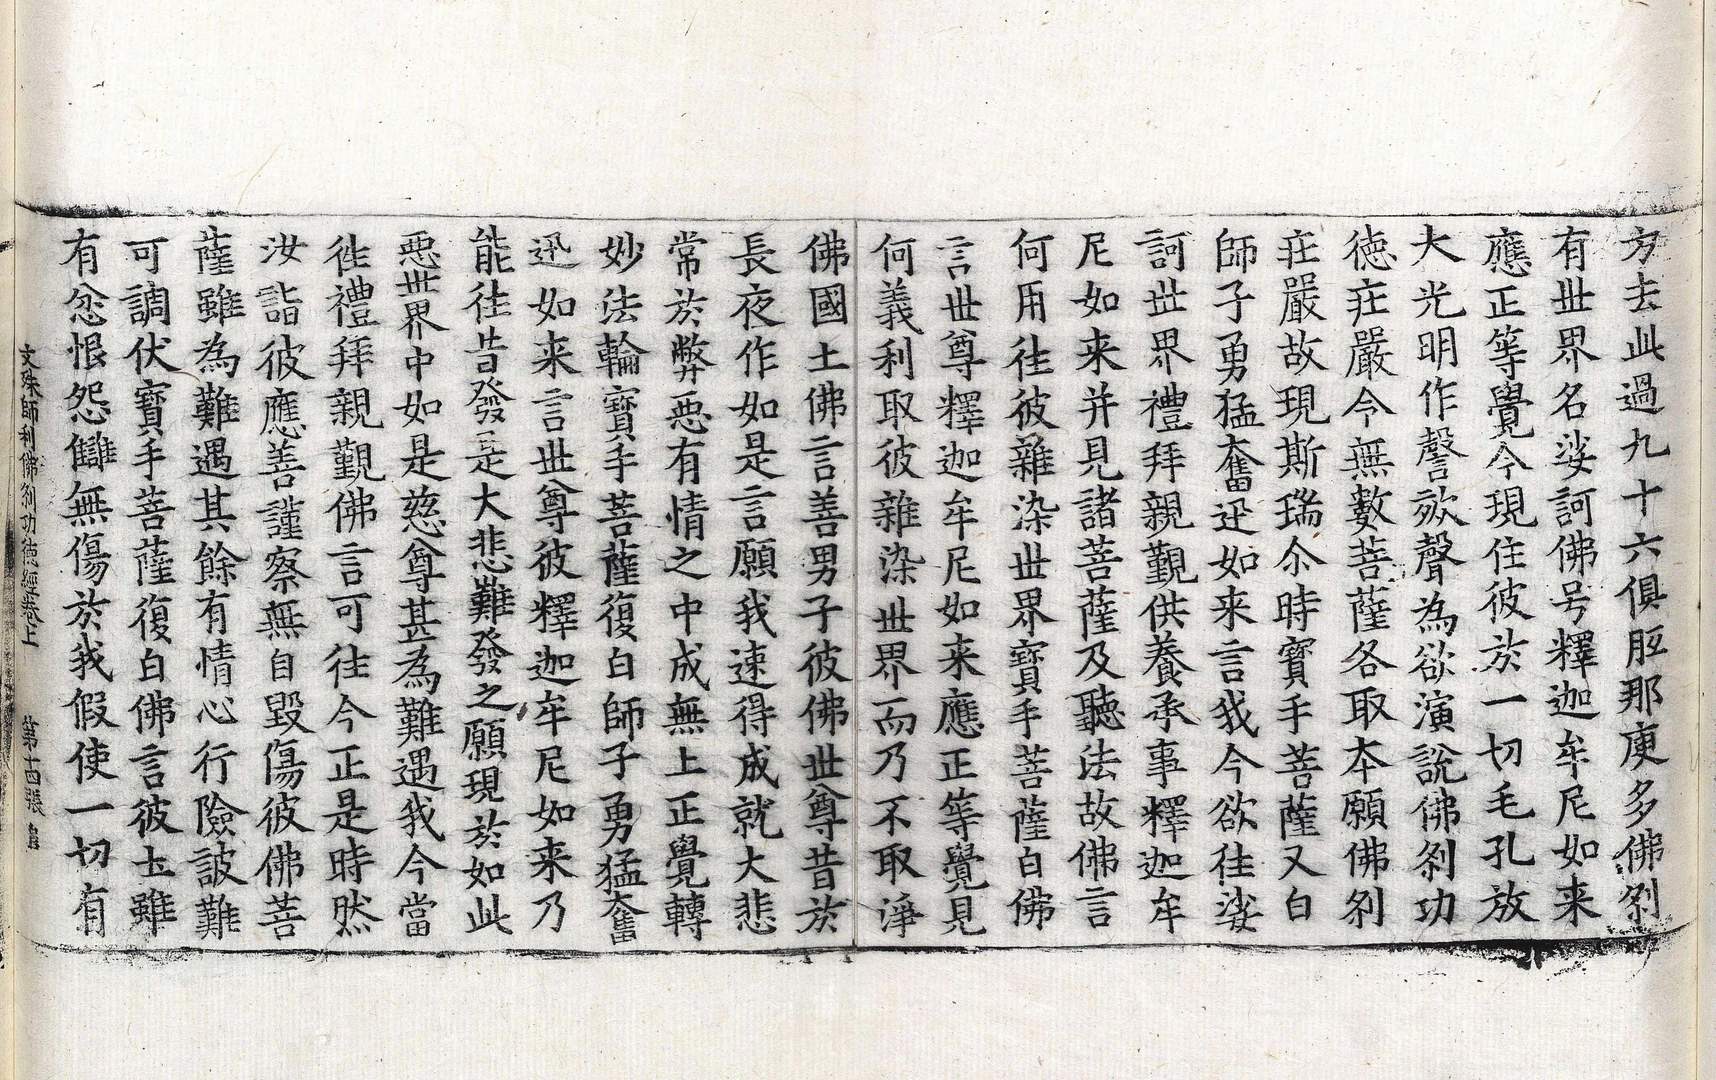 方去此過九十六俱胝那庾多佛刹
有世界名娑訶佛号釋迦牟尼如来
應正等覺今現住彼於一切毛孔放
大光明作謦欬聲為欲演說佛刹功
徳莊嚴令無數菩薩各取本願佛刹
莊嚴故現斯瑞尒時寶手菩薩又白
師子勇猛奮迅如来言我今欲往娑
訶世界禮拜親覲供養承事釋迦牟
尼如来并見諸菩薩及聽法故佛言
何用往彼雜染世界寶手菩薩白佛
言世尊釋迦牟尼如来應正等覺見
何義利取彼雜染世界而乃不取淨
佛國土佛言善男子彼佛世尊昔於
長夜作如是言願我速得成就大悲
常於弊惡有情之中成無上正覺轉
妙法輪寶手菩薩復白師子勇猛奮
迅如来言世尊彼釋迦牟尼如来乃
能往昔發是大悲難發之願現於如此
惡世界中如是慈尊甚為難遇我今當
往禮拜親覲佛言可往今正是時然
汝詣彼應善謹察無自毀傷彼佛菩
薩雖為難遇其餘有情心行險詖難
可調伏寶手菩薩復白佛言彼圡雖
有忿恨怨讎無傷於我假使一切有
文殊師利佛刹功徳經卷上 第十四張 皇